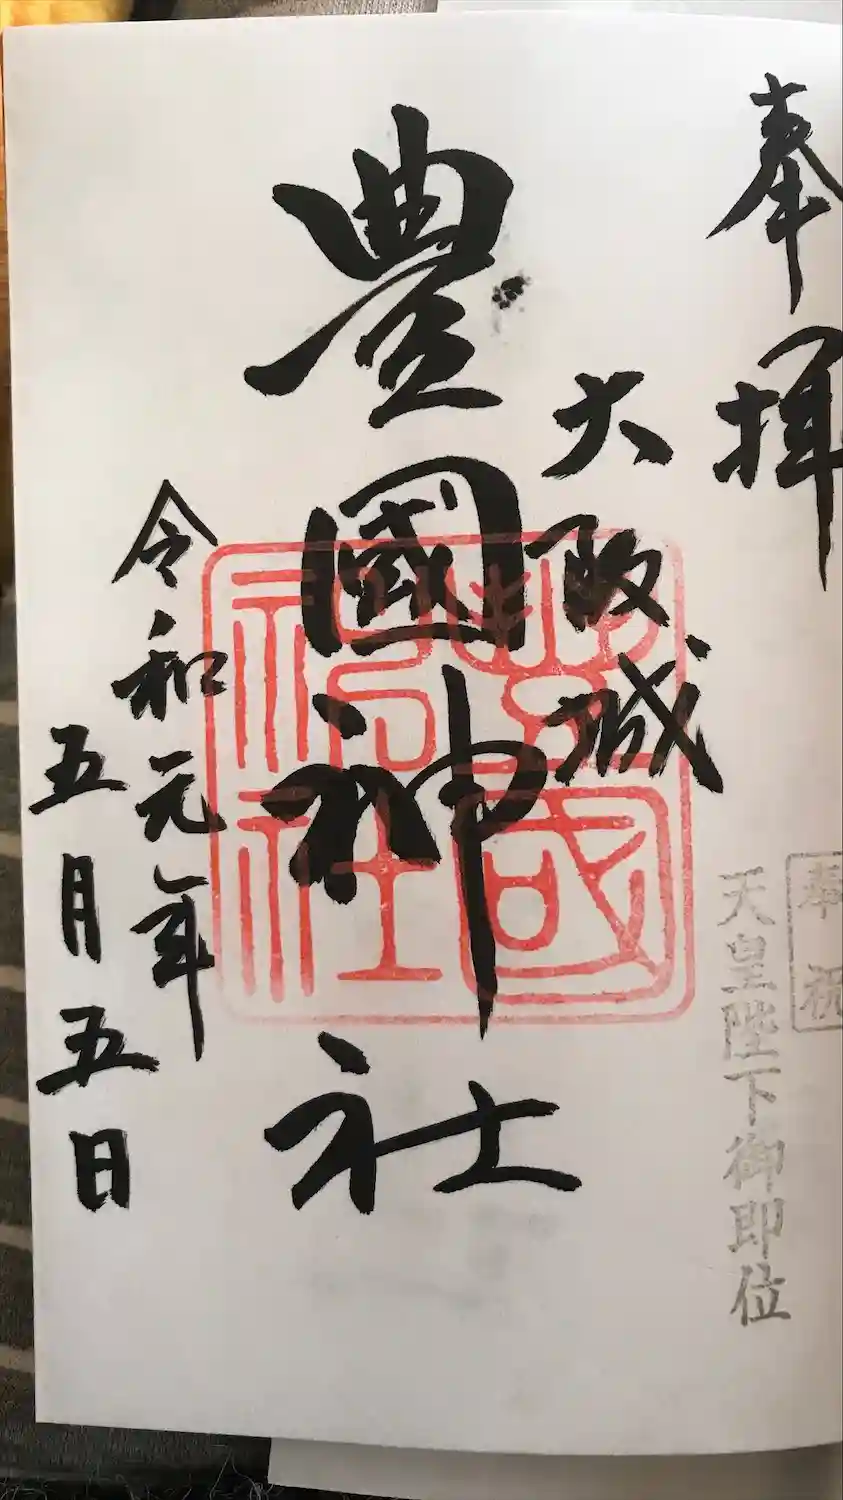 奉拝
奉祝
天皇陛下御即位
大阪城
豊國神社
豊國神社
令和元年
五月五日